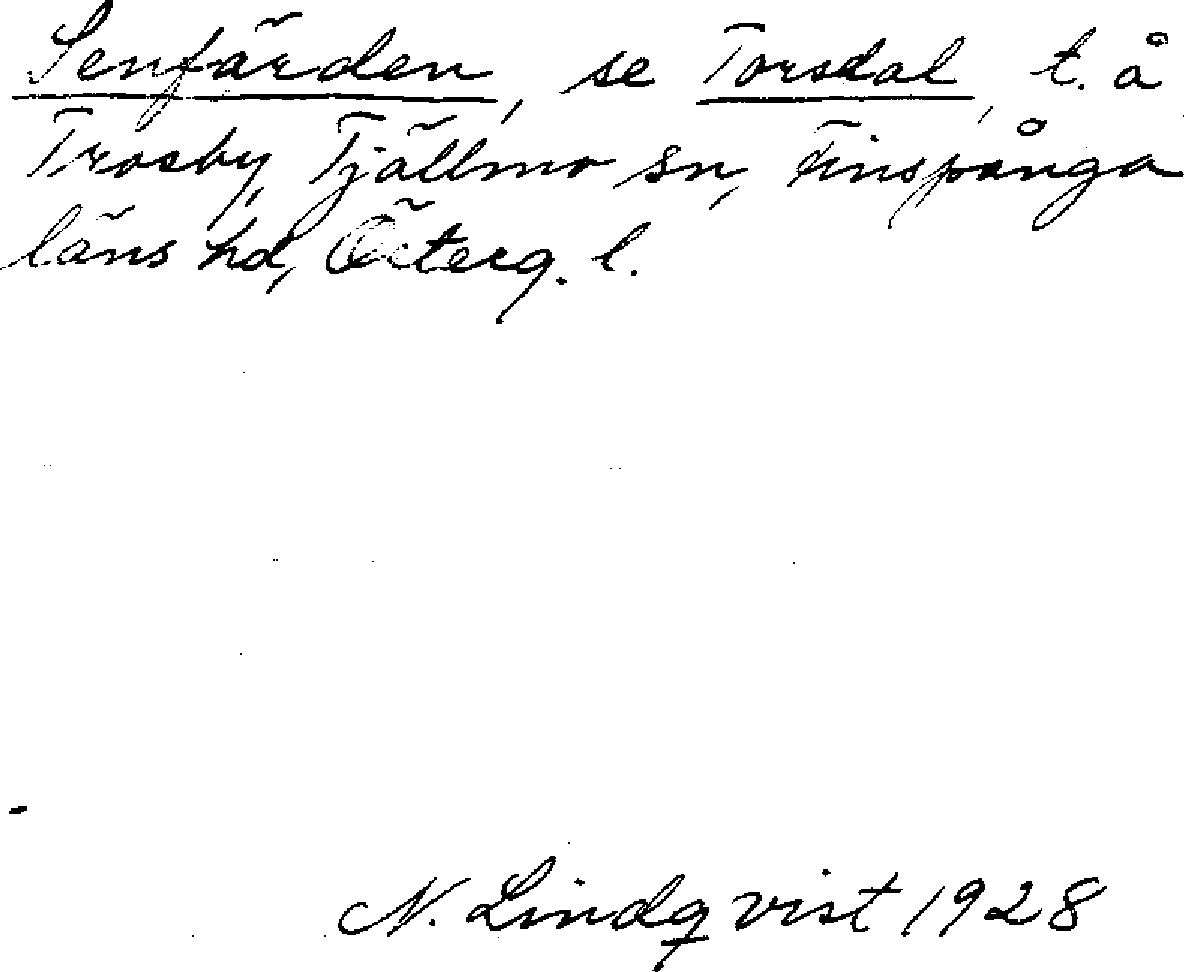 Senfärden, se Torsdal, t. å
Trosby, Tjällmo sn, Finspånga
läns hd, Österg. l.
N. Lindqvist 1928